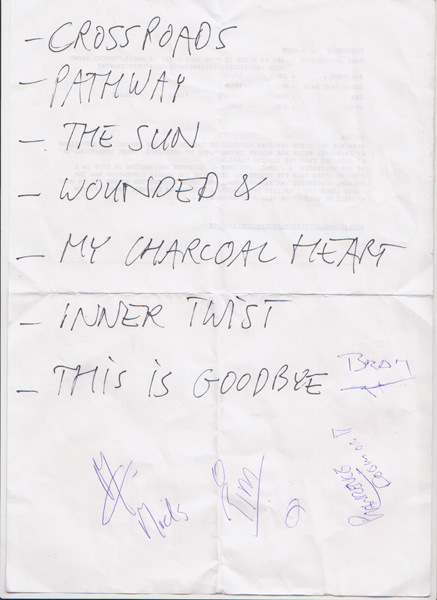 - CROSSROADS
- PATHWAY
- THE SUN
- WOUNDED &
- MY CHARCOAL HEART
- INNER TWIST
- THIS IS GOODBYE
Niels
TIM